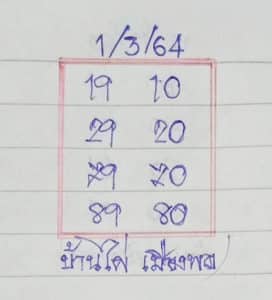 1/3/64
19 10
29 20
79 70
89 80
บ้านไผ่ เมืองพล